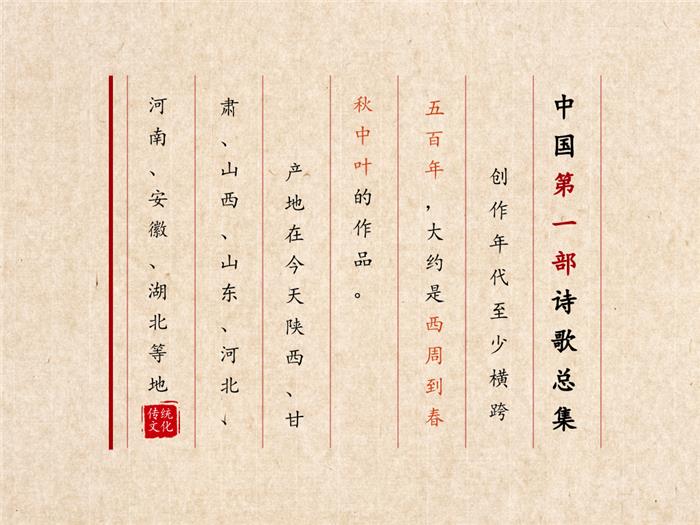 中国第一部诗歌总集
创作年代至少横跨
五百年，大约是西周到春
秋中叶的作品。
产地在今天陕西、甘
肃、山西、山东、河北、
河南、安徽、湖北等地
传统
文化